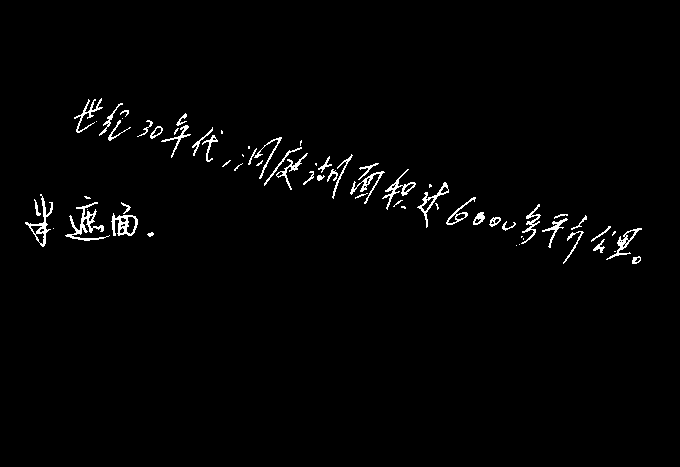 世纪30年代,洞庭湖面积达6000多平方公里。
半遮面.